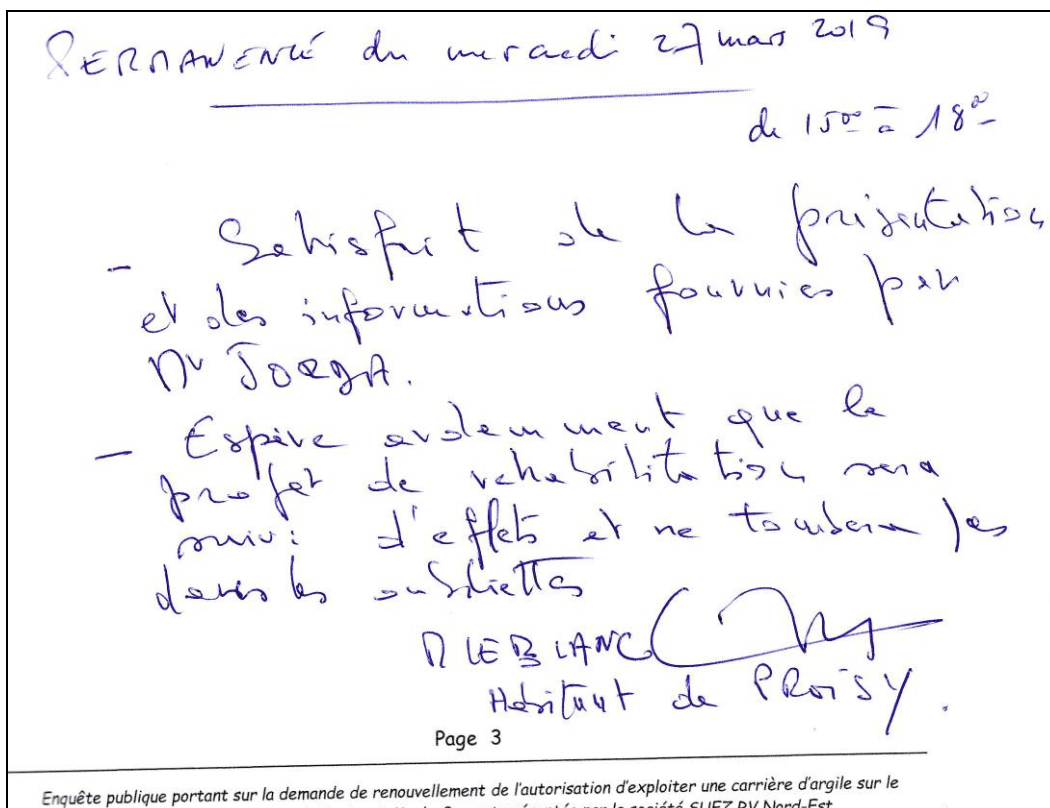 PERMANENCE du mercredi 27 mars 2019
de 15°° à 18°°
- Satisfait de la présentation
et des informations fournies par
Mr JORDA.
- Espère ardemment que le
projet de réhabilitation sera
suivi d'effets et ne tombera pas
dans les oubliettes
M LEBLANC
Habitant de PROISY.
Page 3
Enquête publique portant sur la demande de renouvellement de l'autorisation d'exploiter une carrière d'argile sur le
présentée par la société SUEZ RV Nord-Est